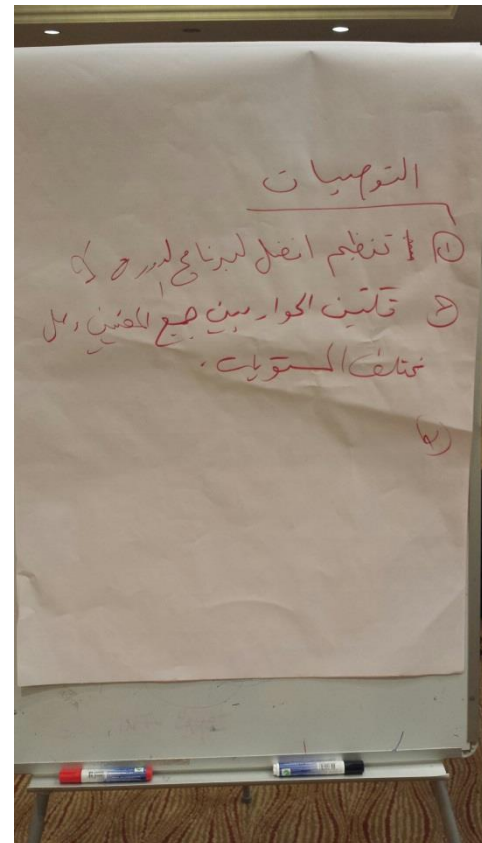 التوصيات
① تنظيم افضل لبرنامج
② تمتين الحوار بين جميع المعنيين وعلى
مختلف المستويات.
③